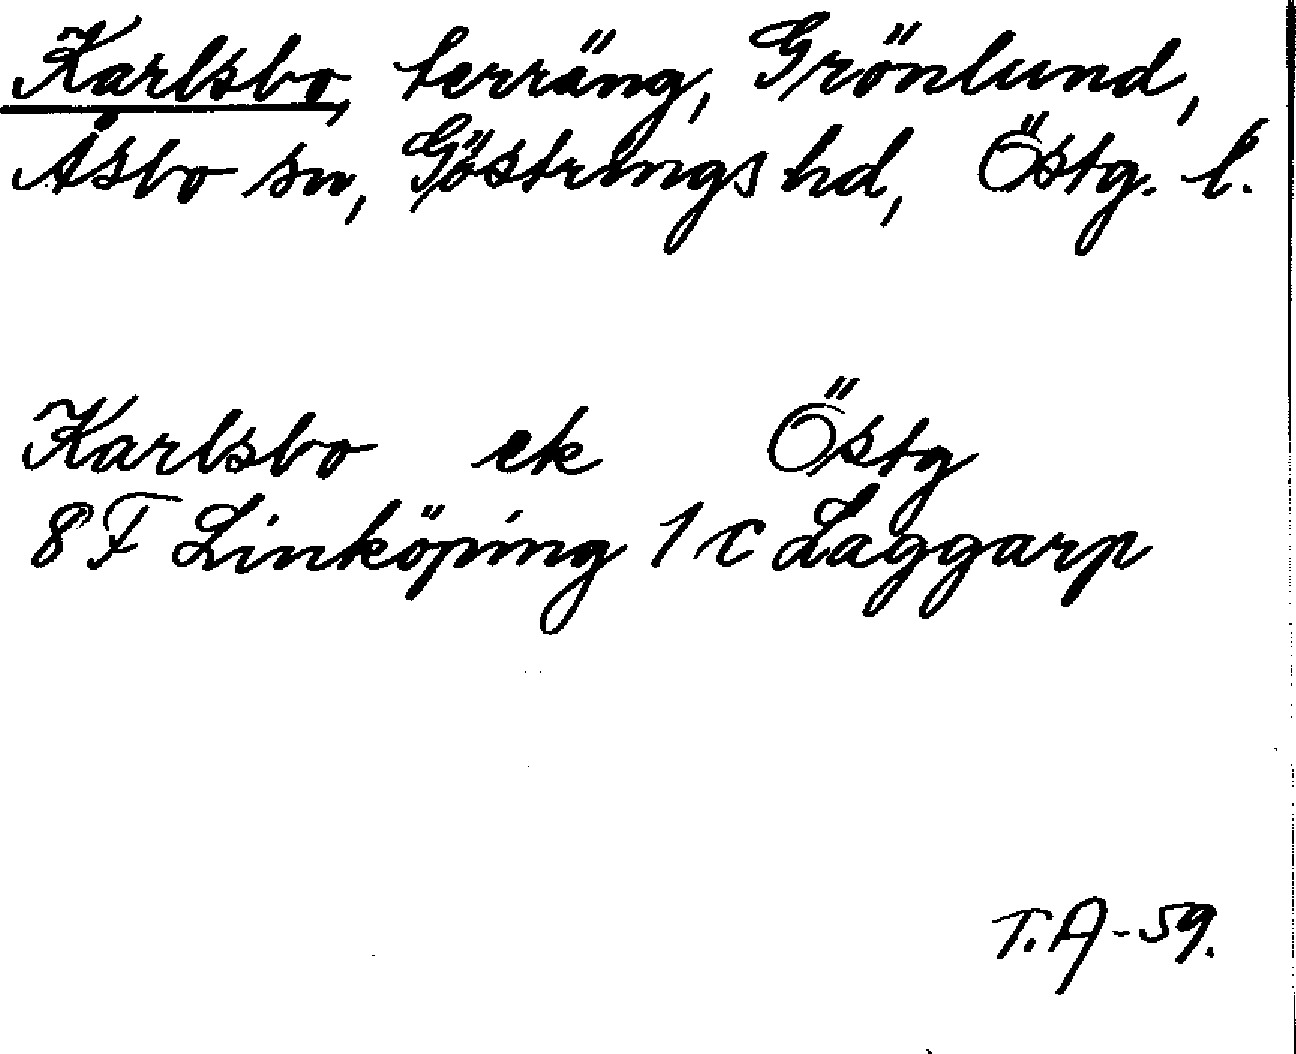 Karlsbo, terräng, Grönlund,
Åsbo sn, Göstrings hd, Östg. l.
Karlsbo ek Östg
8 F Linköping 1 c Laggarp
T.A-59.